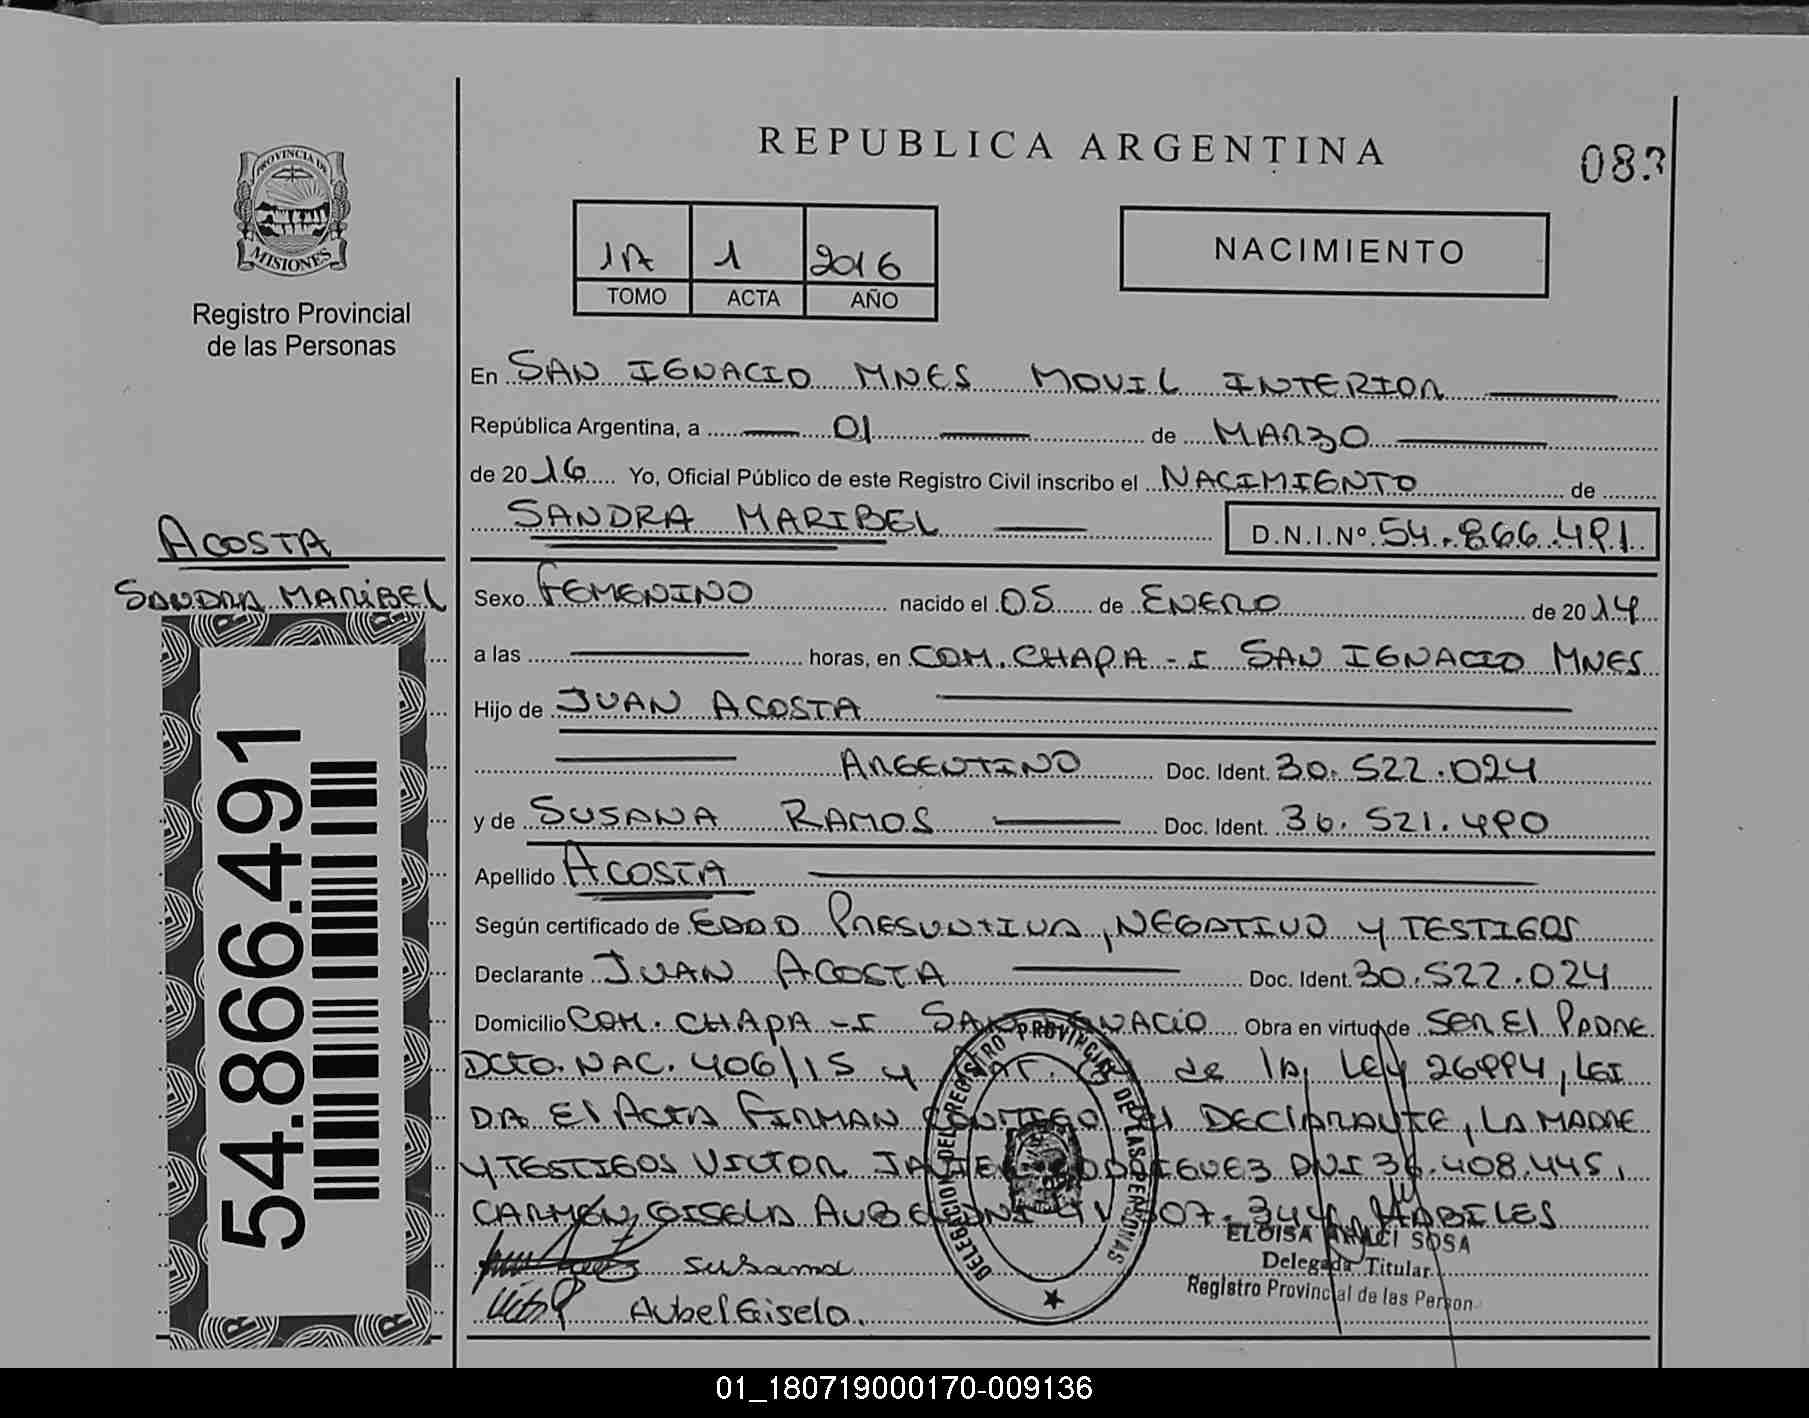 REPUBLICA ARGENTINA
083
PROVINCIA DE
MISIONES
Registro Provincial
de las Personas
1A 1 2016
TOMO ACTA AÑO
NACIMIENTO
En SAN IGNACIO MNES MOVIL INTERIOR
República Argentina, a 01 de MARZO
de 2016 Yo, Oficial Público de este Registro Civil inscribo el NACIMIENTO de
SANDRA MARIBEL D.N.I.Nº 54.866.491
ACOSTA
SANDRA MARIBEL
54.866.491
Sexo FEMENINO nacido el 05 de ENERO de 2014
a las horas, en COM. CHAPA-I SAN IGNACIO MNES
Hijo de JUAN ACOSTA
ARGENTINO Doc. Ident. 30.522.024
y de SUSANA RAMOS Doc. Ident. 36.521.490
Apellido ACOSTA
Según certificado de EDAD PRESUNTIVA, NEGATIVO Y TESTIGOS
Declarante JUAN ACOSTA Doc. Ident. 30.522.024
Domicilio COM. CHAPA-I SAN IGNACIO Obra en virtud de SER El PADRE
DCTO. NAC. 406/15 y de la Ley 26994, LEI
DA El ACTA FIRMAN CONMIGO El DECLARANTE, LA MADRE
Y TESTIGOS VICTOR JAVIER RODRIGUEZ DNI 36.408.445,
CARMEN GISELA AUBEL DNI 307.344, HABILES
Susana
Aubel Gisela.
DELEGACION DEL REGISTRO PROVINCIAL DE LAS PERSONAS
ELOISA ARACI SOSA
Delegada Titular
Registro Provincial de las Person
01_180719000170-009136